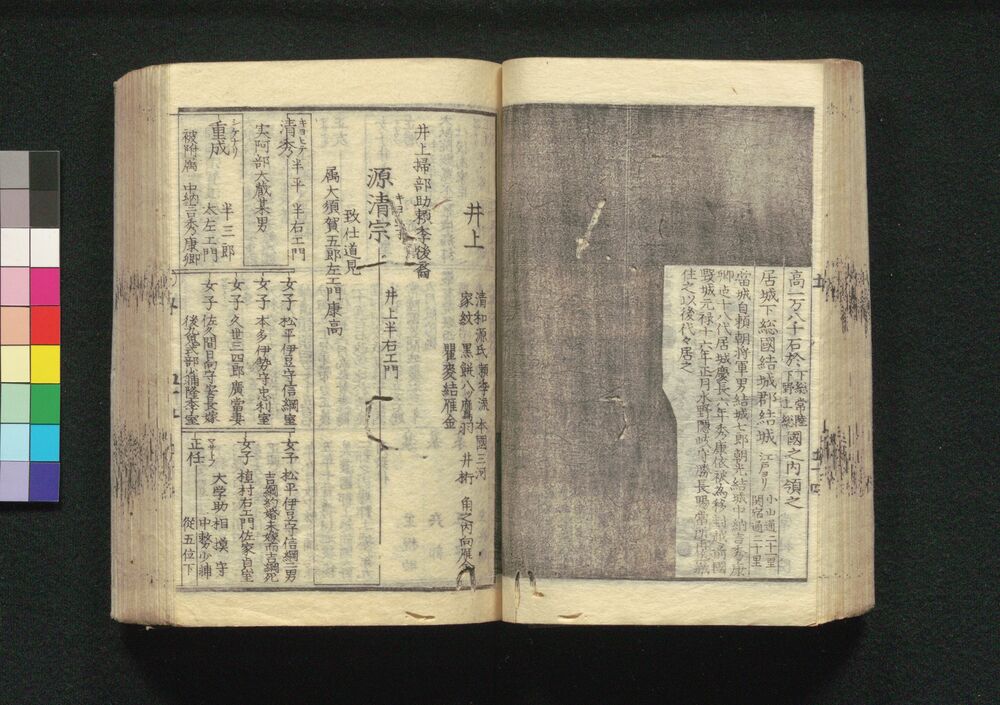 高一万八千石於下総常陸下野上総國之内領之
居城下総國結城郡結城 江戸ヨリ 小山通二十二里 関宿通二十里
當城自頼朝将軍男結城七郎朝光結城中納言秀康
卿迠十八代居城慶長六年秀康依移封越前國
城元禄十六年正月水野隠岐守勝長賜
住之以後代々居之
井上
清和源氏 頼季流 本國三河
家紋 黒餅八ツ鷹羽 井桁 角之内向雁金
瞿麥結雁金
井上掃部助頼季後裔
源清宗 井上半右エ門
致仕道見
属大須賀五郎左エ門康高
清秀 キヨヒデ 半平 半右エ門
実阿部大蔵某男
重成 シゲナリ 半三郎
太左エ門
被附属 中納言秀康卿
女子 松平伊豆守信綱室
女子 本多伊勢守忠利室
女子 久世三四郎廣當妻
女子 佐久間日向守安長嫁
後九鬼式部少輔隆季室
女子 松平伊豆守信綱二男
吉綱約婚未嫁而吉綱死
女子 植村右エ門佐家貞室
正任 大学助 相摸守
中務少輔
従五位下